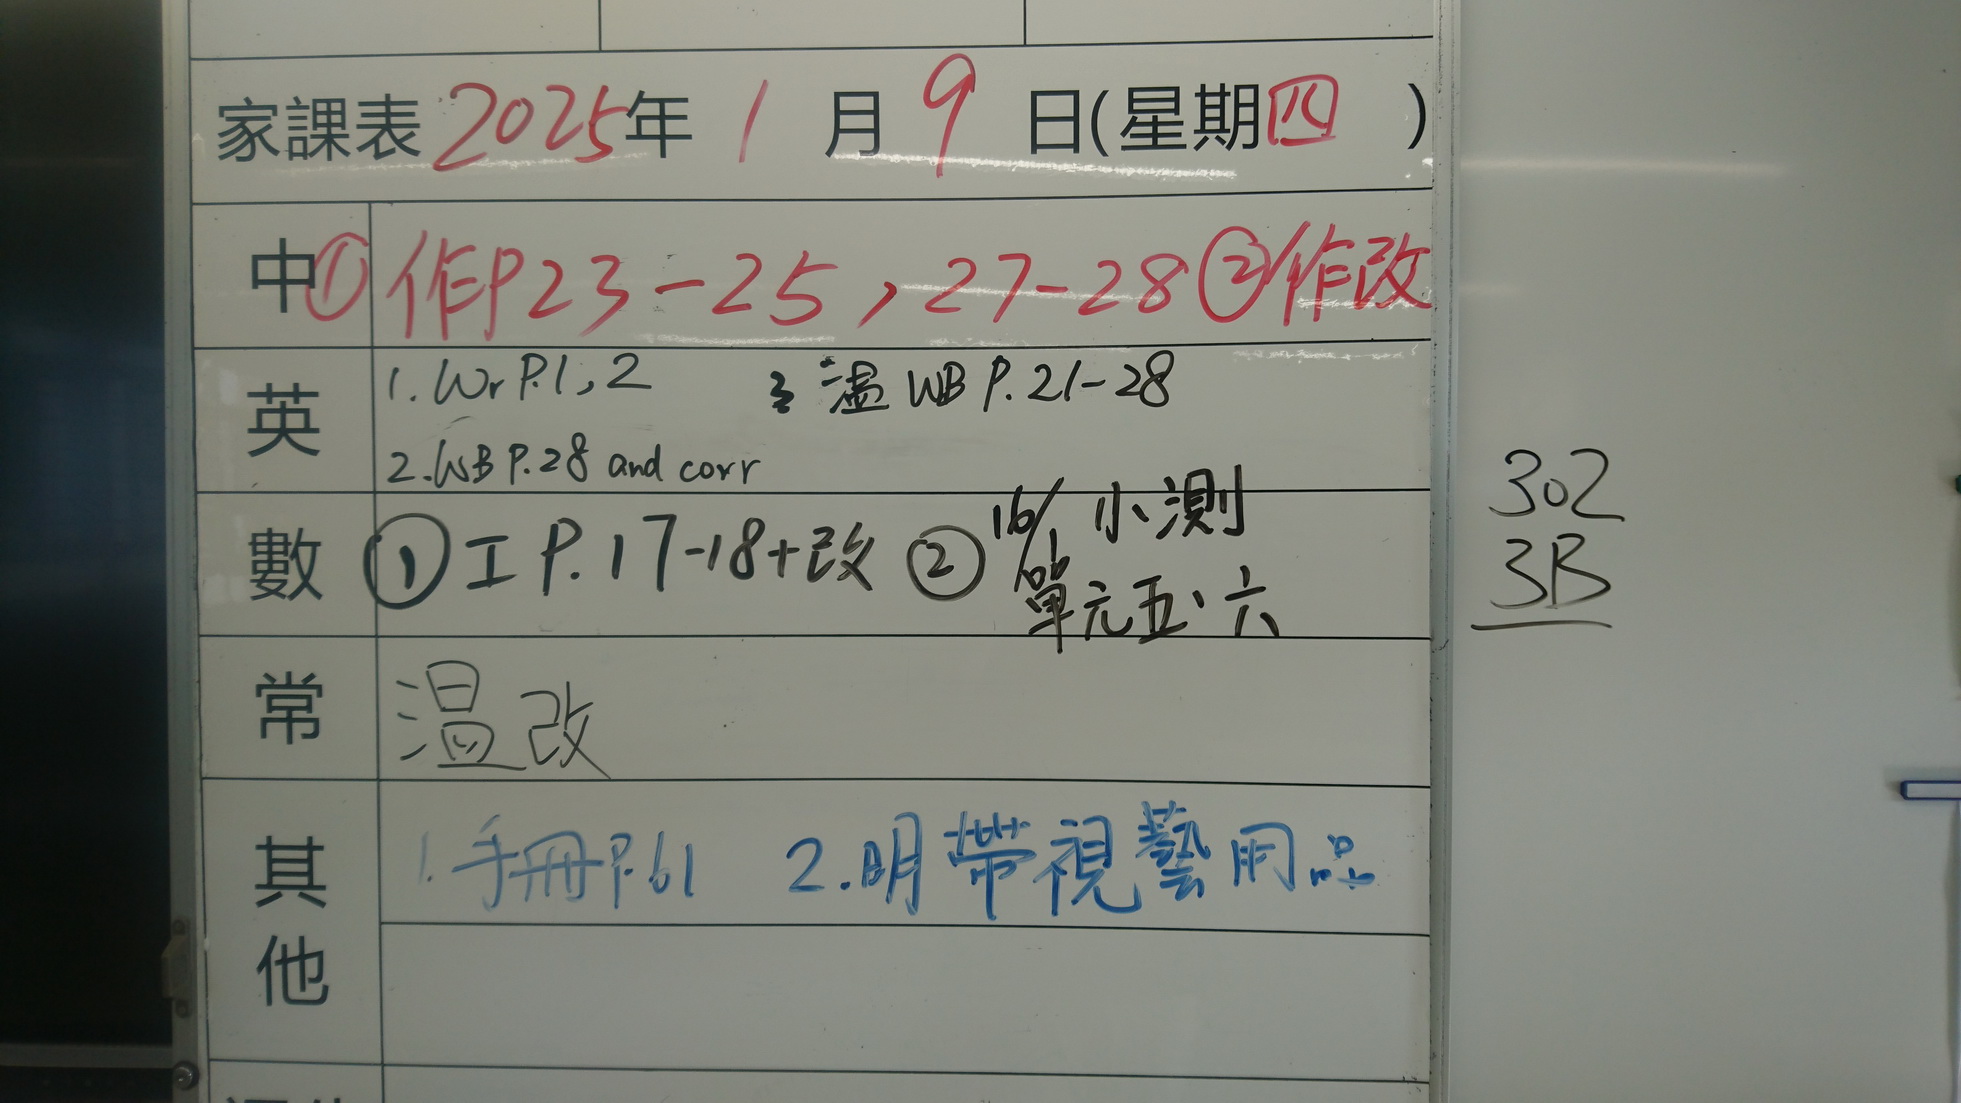 家課表 2025年 1 月 9 日(星期四 )
中 ① 作P23-25,27-28 ② 作改
英 1. Wr P.1,2 3 溫 WB P.21-28
2. WB P.28 and corr
數 ① 工 P.17-18+改 ② 16/ 小測
單元五、六
常 溫改
其他 1.手冊P.61 2.明帶視藝用品
302
3B